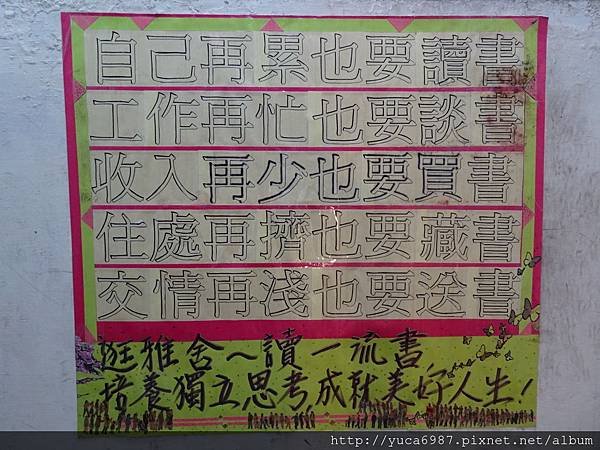 自己再累也要讀書
工作再忙也要談書
收入再少也要買書
住處再擠也要藏書
交情再淺也要送書
逛雅舍～讀一流書
培養獨立思考,成就美好人生!
http://yuca6987.pixnet.net/album